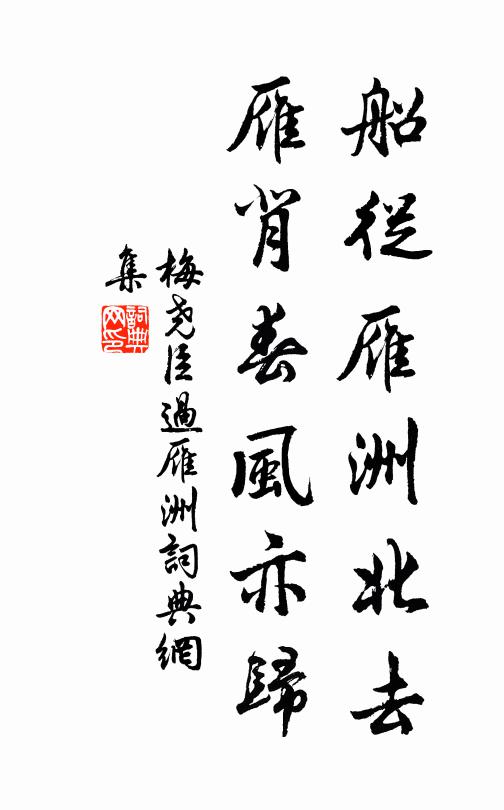 船從雁洲北去
雁背春風亦歸
梅尧臣過雁洲詞典網
集
詞典
网印